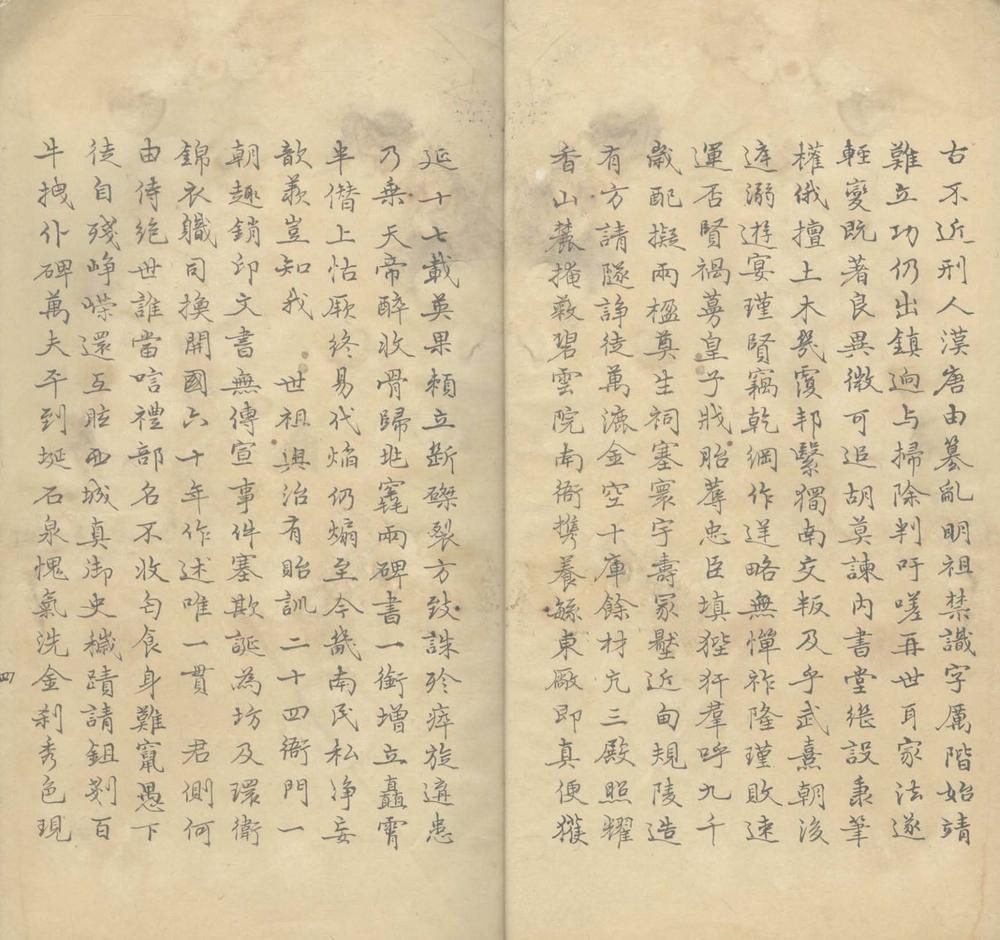 古不近刑人漢唐由篡亂明祖禁識字厲階始靖
難立功仍出鎮逈与掃除判吁嗟再世耳家法遂
輕變既著良異微可追胡莫諫内書堂繼設秉筆
權俄擅土木幾覆邦繫獨南交叛及乎武熹朝後
先溺遊宴瑾賢竊乾綱作逆略無憚祚隆瑾敗速
運否賢禍蔓皇子戕胎蓐忠臣填狴犴羣呼九千
歲配擬兩楹奠生祠塞寰宇壽冢壓近甸規陵造
有方請隧諍徒萬漉金空十庫餘材亢三殿照耀
香山麓掩敝碧雲院南衙携養緜東厰即真便獲
延十七載英果頼立斷磔裂方致誅殄瘁旋遘患
乃乗天帝醉收骨歸北竁兩碑書一銜增立矗霄
半僭上怙厥終易代焰仍煽至今畿南民私浄妄
歆羨豈知我 世祖興治有貽訓二十四衙門一
朝趣銷印文書無傳宣事件塞欺誕為坊及環衛
錦衣職司換開國六十年作述唯一貫 君側何
由侍絶世誰當唁禮部名不收匄食身難竄愚下
徒自殘崢嶸還互眩西城真御史穢蹟請鉏剗百
牛拽仆碑萬夫平到埏石泉愧氣洗金刹秀色現
四